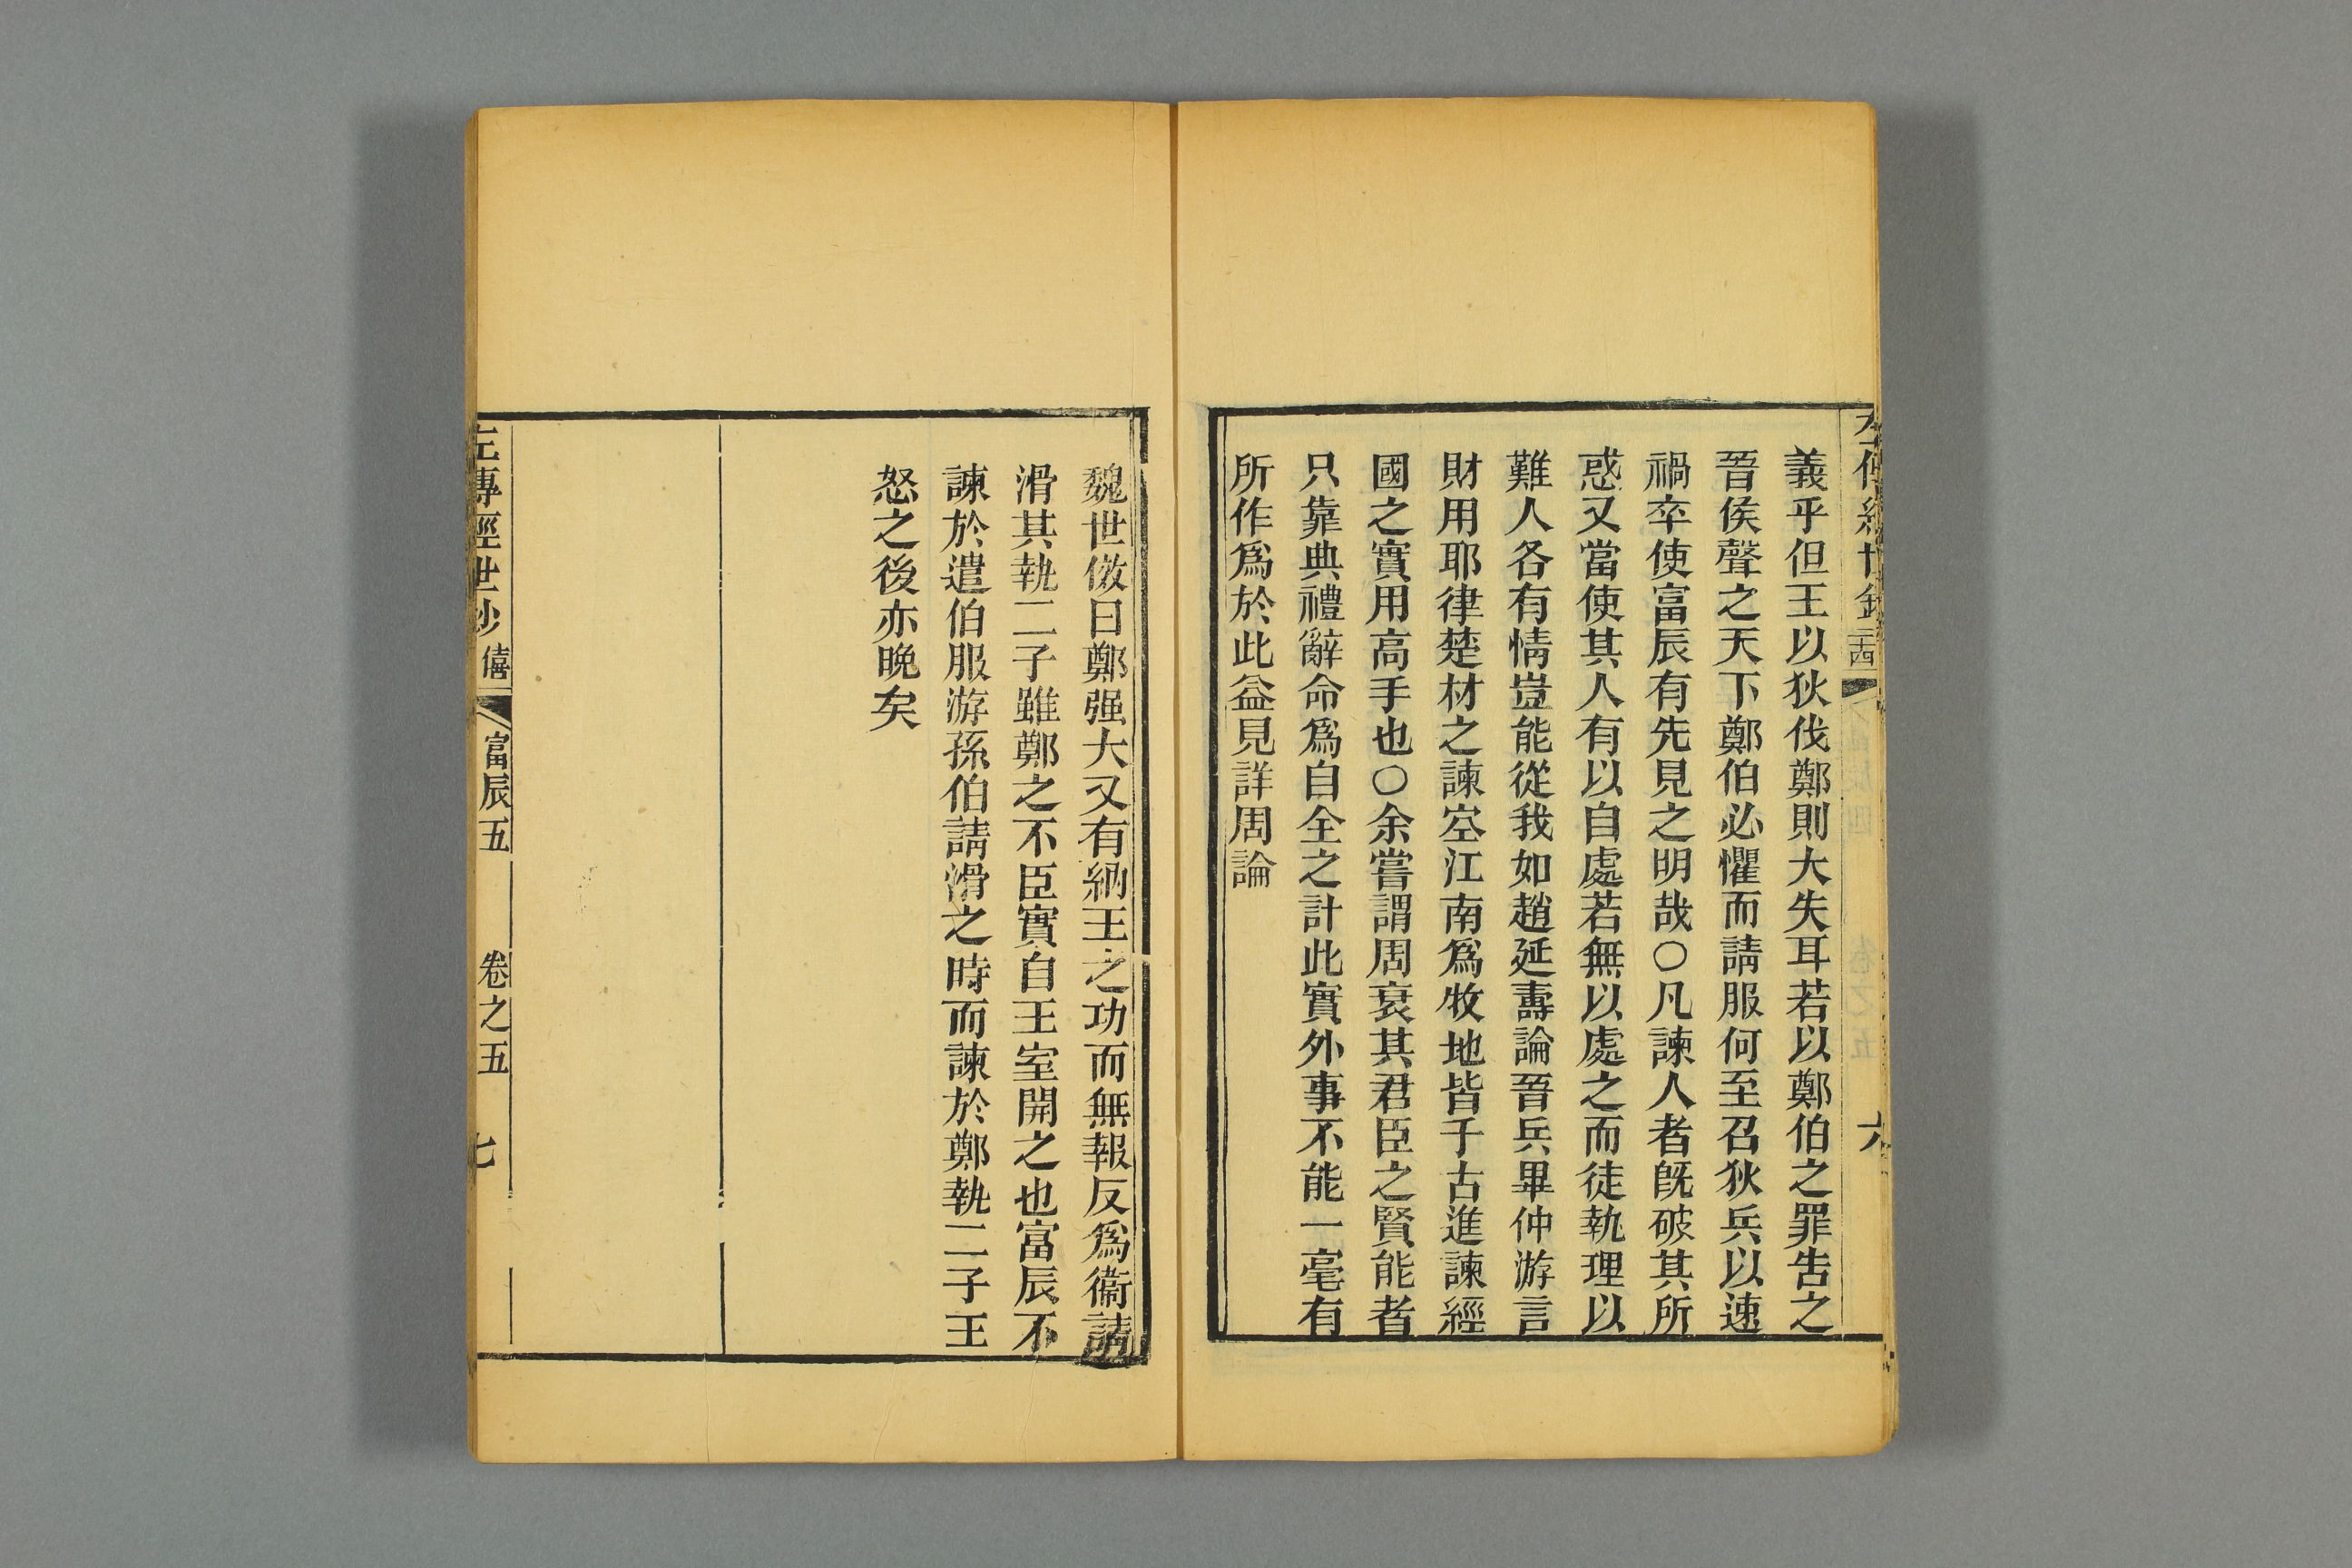 義乎但王以狄伐鄭則大失耳若以鄭伯之罪告之
晉侯聲之天下鄭伯必懼而請服何至召狄兵以速
禍卒使富辰有先見之明哉○凡諫人者旣破其所
惑又當使其人有以自處若無以處之而徒執理以
難人各有情豈能從我如趙延壽論晉兵畢仲游言
財用耶律楚材之諫空江南爲牧地皆千古進諫經
國之實用高手也○余嘗謂周衰其君臣之賢能者
只靠典禮辭命爲自全之計此實外事不能一毫有
所作爲於此益見詳周論
魏世傚曰鄭强大又有納王之功而無報反爲衞請
滑其執二子雖鄭之不臣實自王室開之也富辰不
諫於遣伯服游孫伯請滑之時而諫於鄭執二子王
怒之後亦晚矣
左傳經世鈔 僖 富辰五 卷之五 七